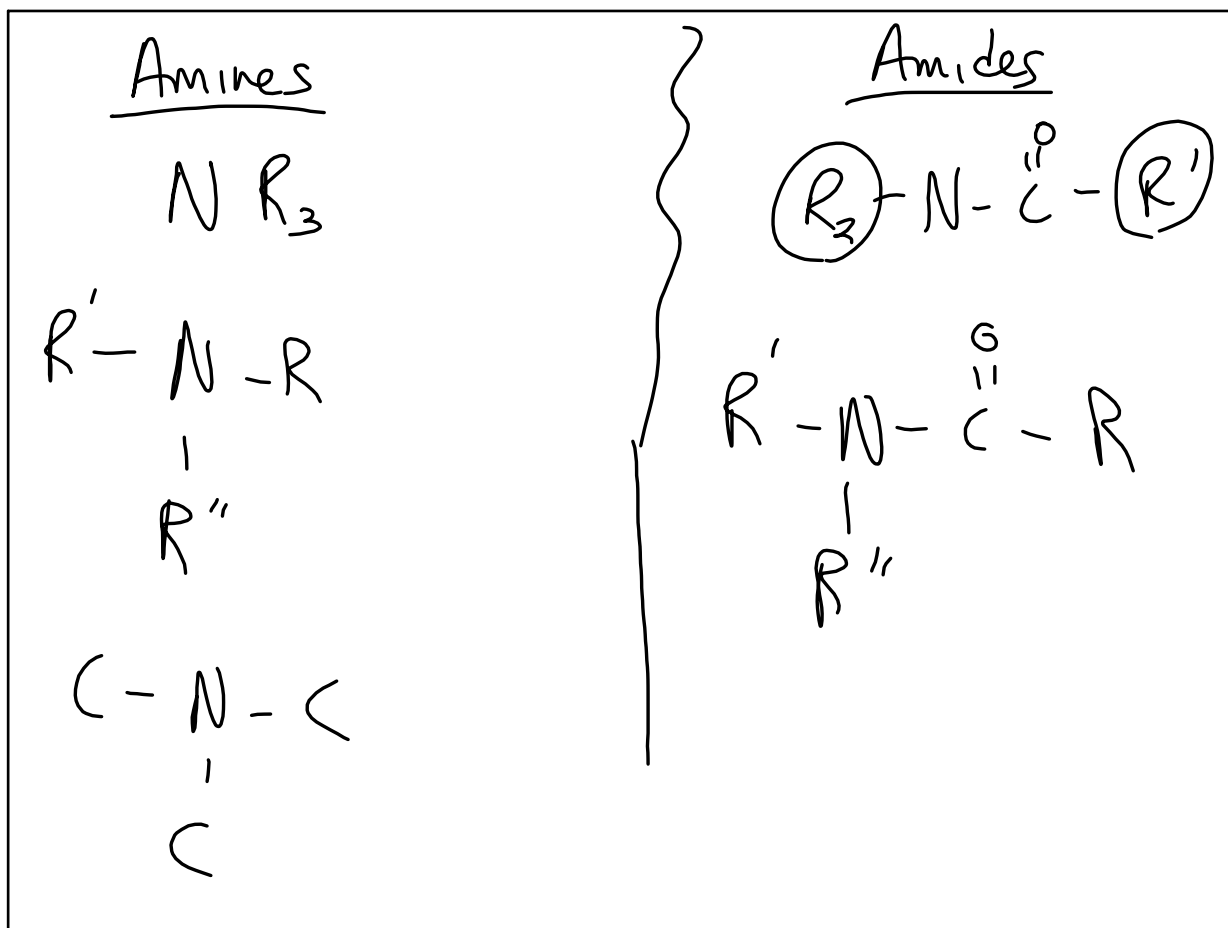 Amines
N R3
R' - N - R
|
R"
C - N - C
|
C
Amides
O
||
R2 - N - C - R'
O
||
R' - N - C - R
|
R"